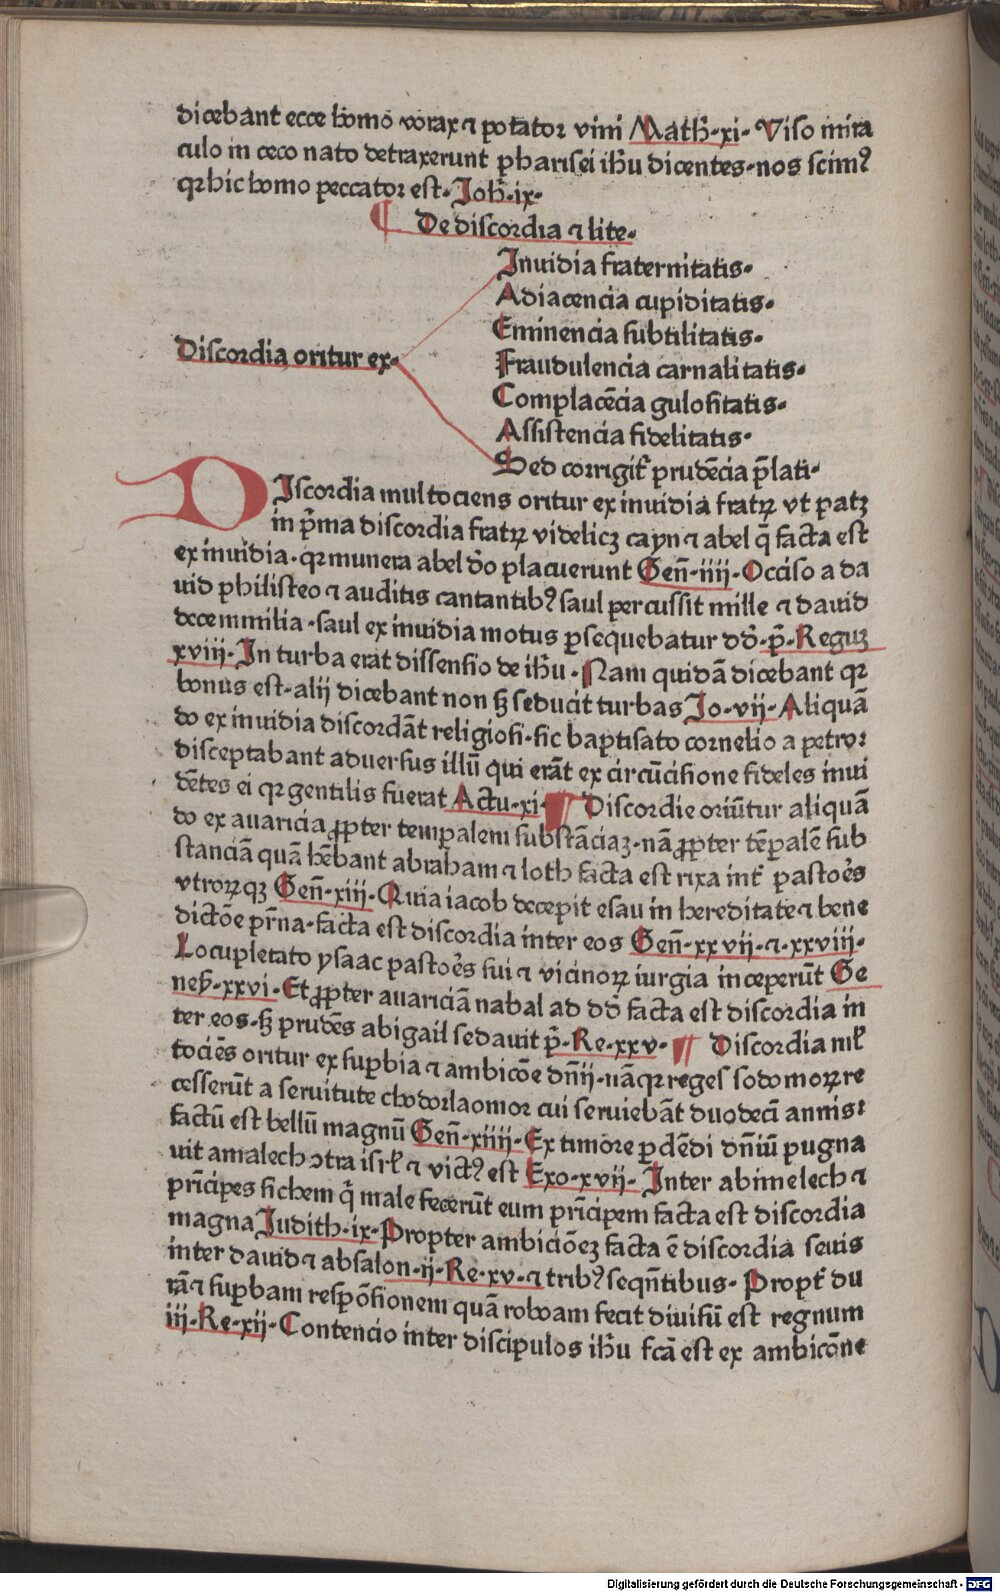 dicebant ecce homo vorax ⁊ potator vini Math̄·xi· Viso mira
culo in ceco nato detraxerunt pharisei ih̄u dicentes·nos scimꝰ
qꝛ hic homo peccator est·Joh̄·ix·
¶ De discordia ⁊ lite·
Inuidia fraternitatis·
Adiacencia cupiditatis·
Eminencia subtilitatis·
Discordia oritur ex·
Fraudulencia carnalitatis·
Complacēcia gulositatis·
Assistencia fidelitatis·
Sed corrigit᷑ prudēcia p̄lati·
DIscordia multociens oritur ex inuidia fratꝝ vt patꝫ
in p̄ma discordia fratꝝ videlicꝫ cayn ⁊ abel q̄ facta est
ex inuidia·qꝛ munera abel dō placuerunt Geń·iiij·Occiso a da
uid philisteo ⁊ auditis cantantibꝰ saul percussit mille ⁊ dauid
decem milia·saul ex inuidia motus ꝑsequebatur dd̄·p̄·Reguꝫ
xviij·In turba erat dissensio de ih̄u·Nam quidā dicebant qꝛ
bonus est·alij dicebant non sꝫ seducit turbas Jo·vij·Aliquā
do ex inuidia discordāt religiosi·sic baptisato cornelio a petro:
disceptabant aduersus illū qui erāt ex circūcisione fideles inui
dētes ei qꝛ gentilis fuerat Actu·xi· ¶ Discordie oriūtur aliquā
do ex auaricia ꝓpter temꝑalem substāciaꝫ·nā ꝓpter tēꝑalē sub
stanciā quā hēbant abraham ⁊ loth facta est rixa int᷑ pastoēs
vtroꝝqꝫ Geń·xiij·Quia iacob decepit esau in hereditate ⁊ bene
dictōe pr̄na·facta est discordia inter eos Geń·xxvij·⁊·xxviij·
Locupletato ysaac pastoēs sui ⁊ vicinoꝝ iurgia inceperūt Ge
neß·xxvi·Et ꝓpter auariciā nabal ad dd̄ facta est discordia in
ter eos·sꝫ prudēs abigail sedauit p̄·Re·xxv· ¶ Discordia ml̄
tociēs oritur ex suꝑbia ⁊ ambicōe dn̄ij·nāqꝛ reges sodomoꝝ re
cesserūt a seruitute chodorlaomor cui seruiebāt duodecī annis:
factū est bellū magnū Geń·xiiij·Ex timore ꝑdēdi dn̄iū pugna
uit amalech ꝯtra isrl̄ ⁊ victꝰ est Exo·xvij· Inter abimelech ⁊
prīcipes sichem q̄ male fecerūt eum prīcipem facta est discordia
magna Judith·ix·Propter ambiciōeꝫ facta ē discordia seuis
inter dauid ⁊ absalon·ij·Re·xv·⁊ tribꝰ seqn̄tibus·Propt᷑ du
rā ⁊ suꝑbam respōsionem quā roboam fecit diuisū est regnum
iij·Re·xij·Contencio inter discipulos ih̄u fcā est ex ambicōne
Digitalisierung gefördert durch die Deutsche Forschungsgemeinschaft - DFG